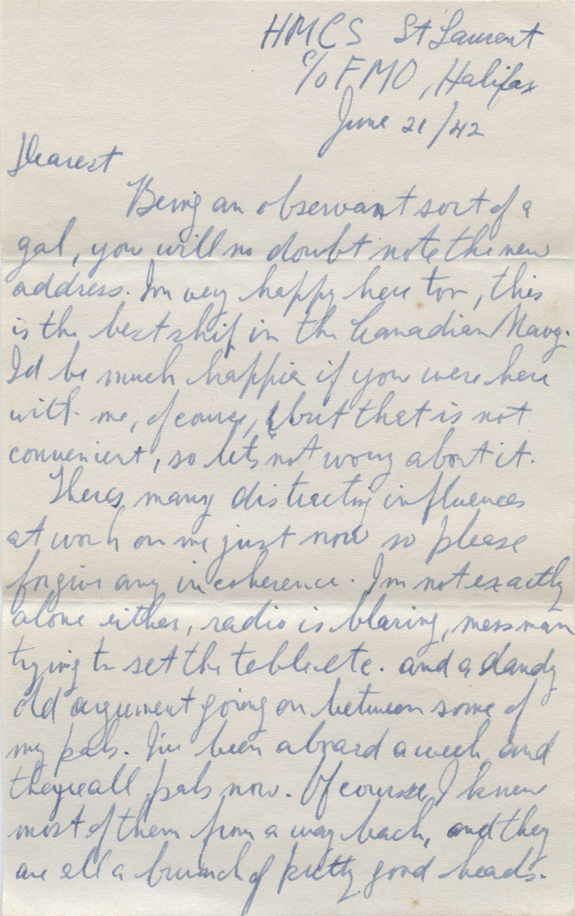 HMCS St Laurent
c/o FMO, Halifax
June 21/42
Dearest
Being an observant sort of a
gal, you will no doubt note the new
address. Im very happy here too, this
is the best ship in the Canadian Navy.
Id be much happier if you were here
with me, of course, but that is not
convenient, so lets not worry about it.
Theres many distracting influences
at work on me just now so please
forgive any incoherence. Im not exactly
alone either, radio is blaring, mess man
trying to set the table etc. and a dandy
old argument going on between some of
my pals. I've been aboard a week and
theyre all pals now. Of course I knew
most of them from a way back, and they
are all a brunch of pretty good heads.